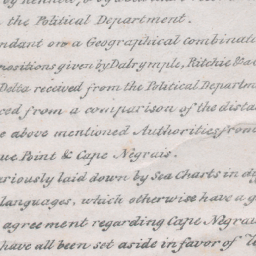 the Political Department.
ndant on a Geographical combinati
positions given by Dalrymple, Ritchie
Delta received from the Political Departm
ved from a comparison of the dista
e above mentioned Authorities, from
ue Point & Cape Negrais.
ariously laid down by Sea Charts in di
languages, which otherwise have a g
agreement regarding Cape Negrais
have all been set aside in favor of